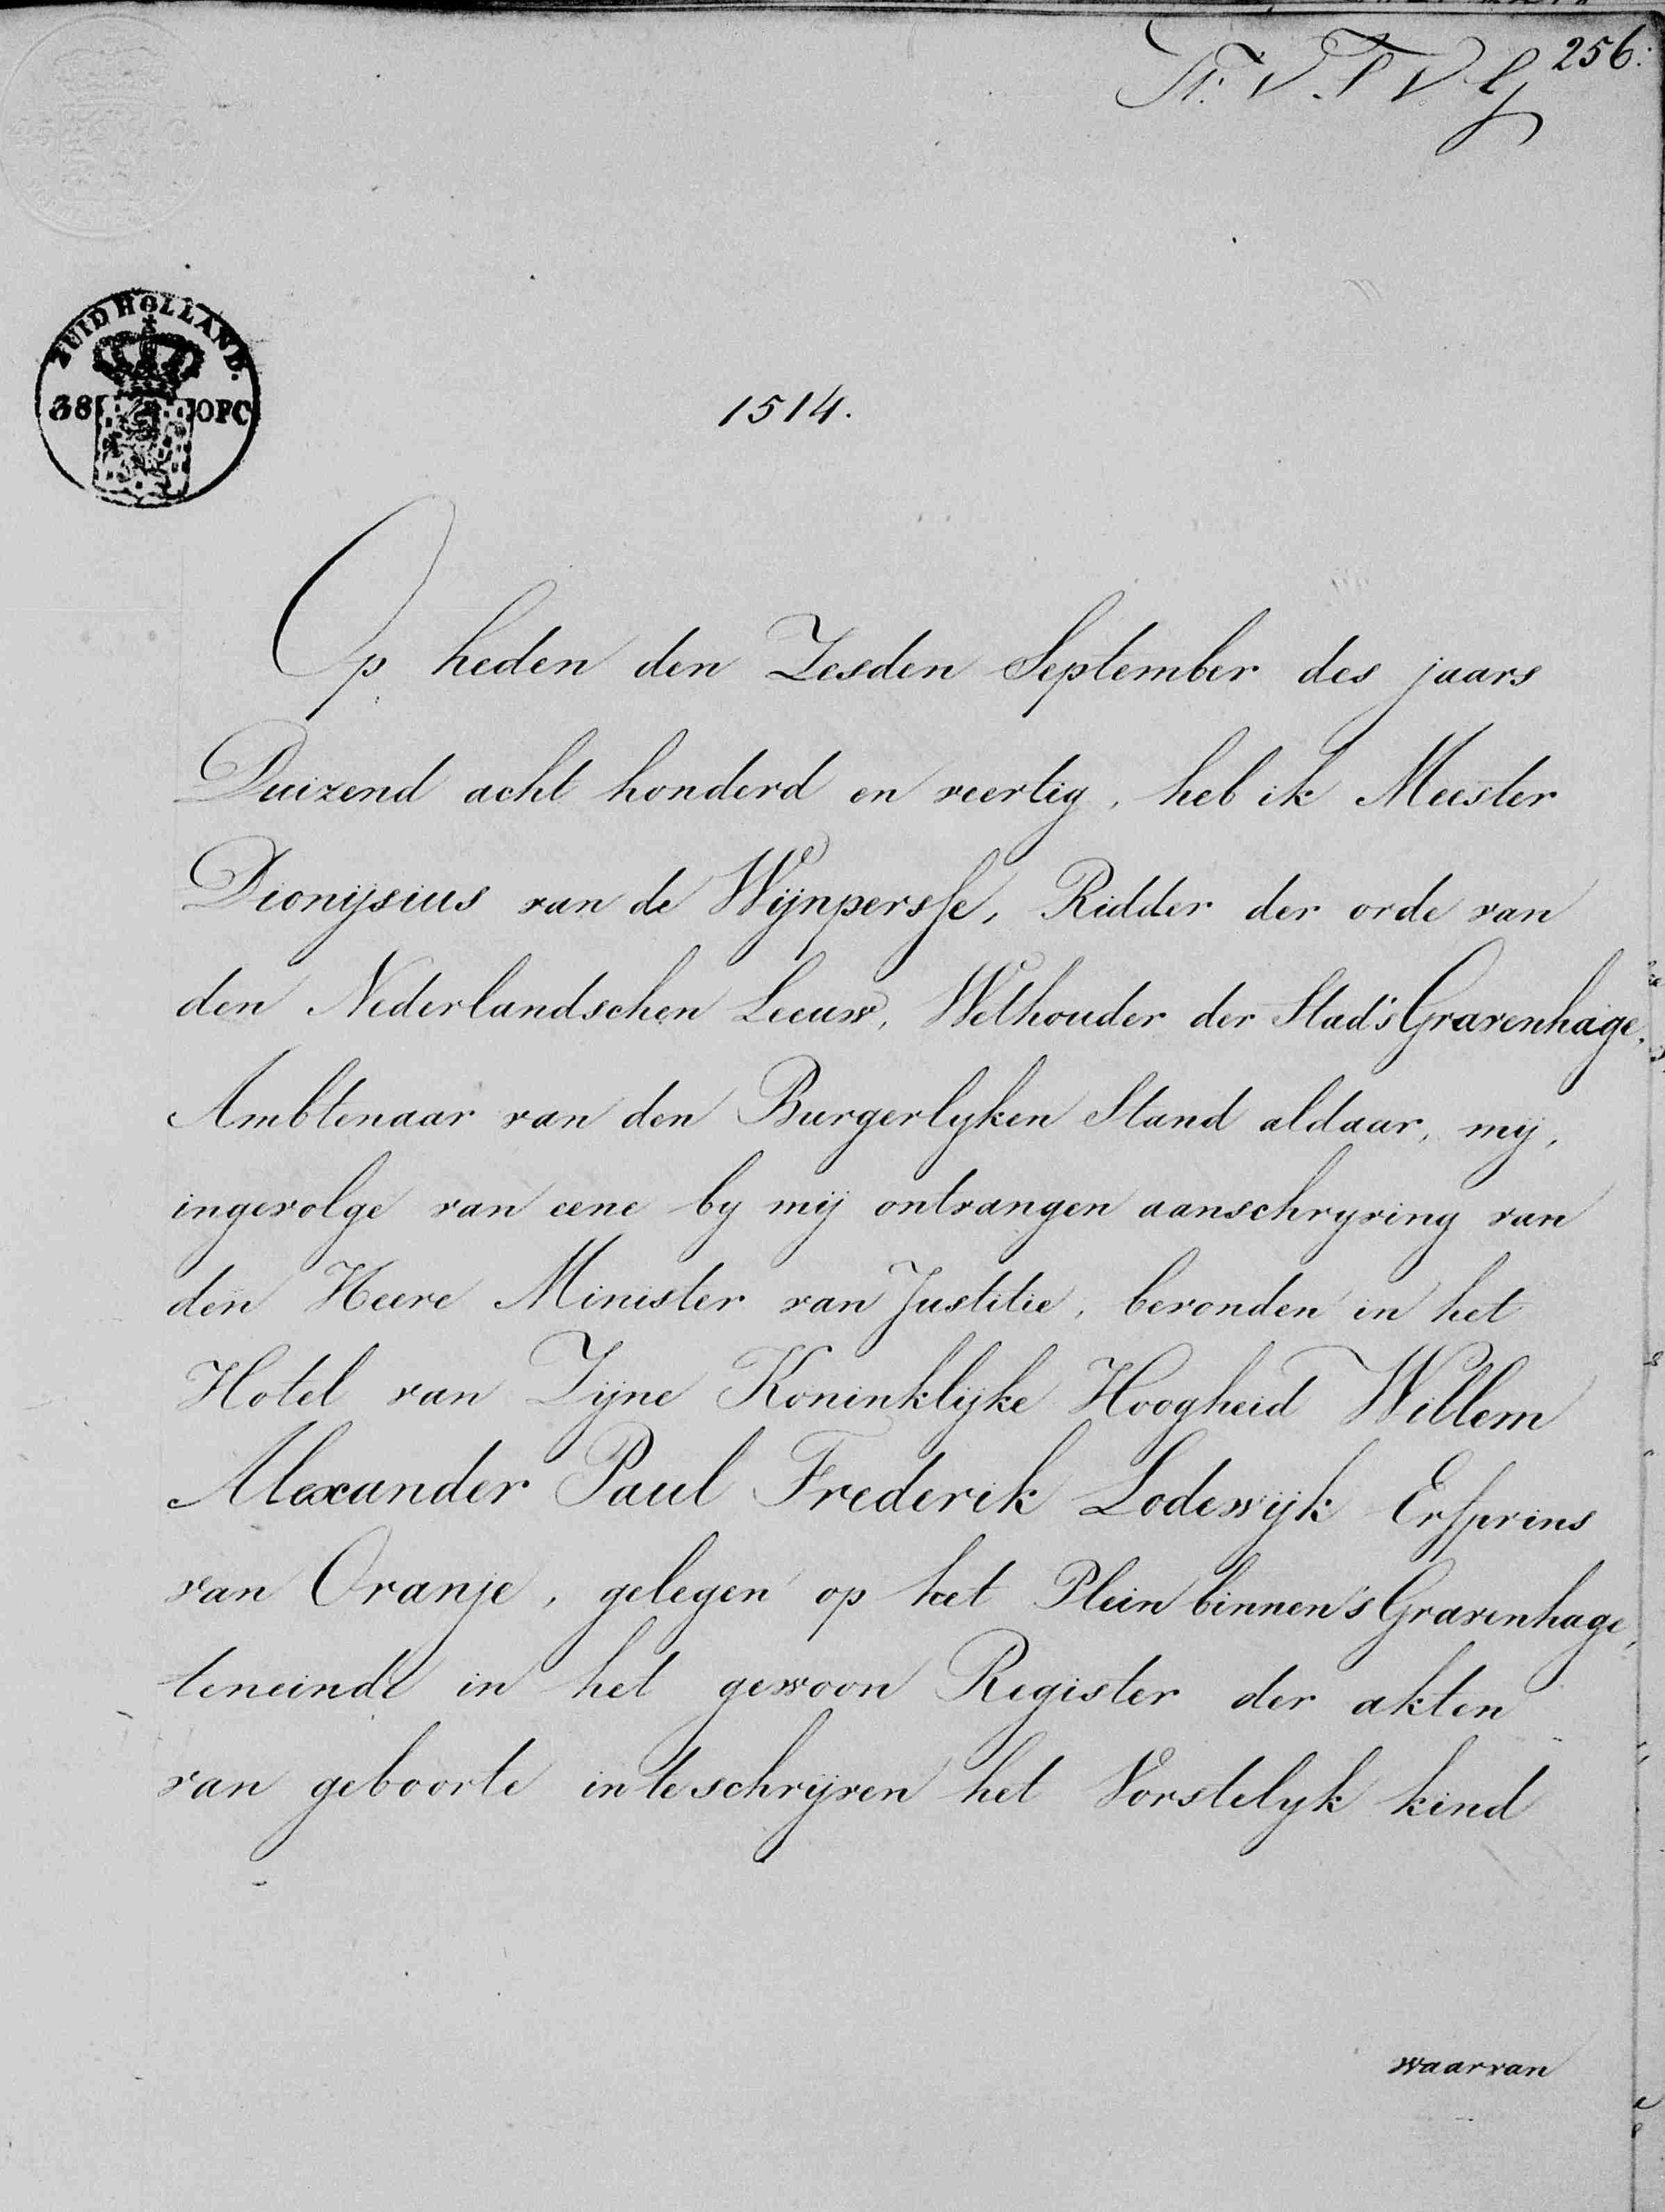 256.
ZUID HOLLAND.
38 OPC
1514.
Op heden den Zesden September des jaars
Duizend acht honderd en veertig, heb ik Meester
Dionijsius van de Wijnpersse, Ridder der orde van
den Nederlandschen Leeuw, Wethouder der Stad 's Gravenhage,
Ambtenaar van den Burgerlyken Stand aldaar, mij,
ingevolge van eene by mij ontvangen aanschryving van
den Heere Minister van Justitie, bevonden in het
Hotel van Zijne Koninklijke Hoogheid Willem
Alexander Paul Frederik Lodewijk Erfprins
van Oranje, gelegen op het Plein binnen 's Gravenhage,
teneinde in het gewoon Register der akten
van geboorte inteschrijven het Vorstelyk kind
waarvan